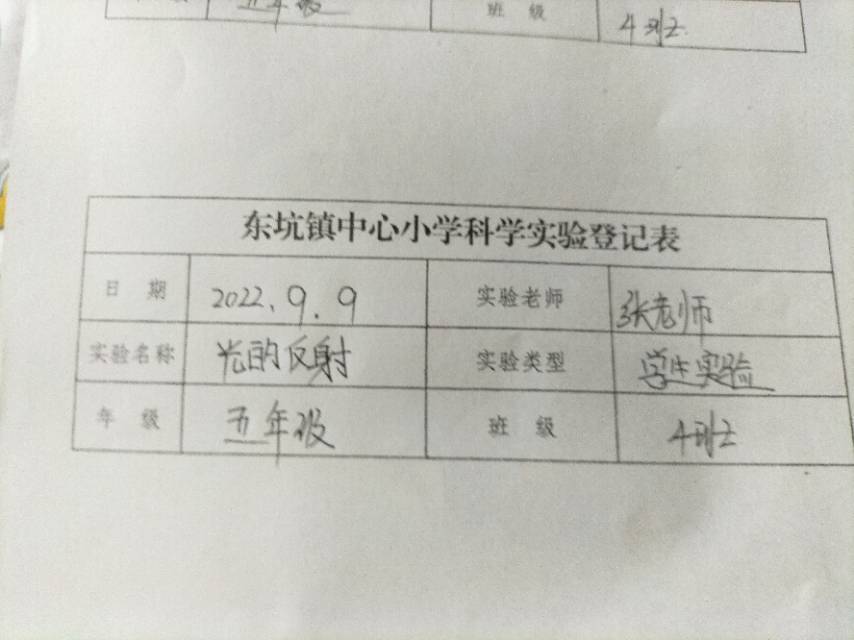 五年级 班 级 4班
东坑镇中心小学科学实验登记表
日 期 2022.9.9 实验老师 张老师
实验名称 光的反射 实验类型 学生实验
年 级 五年级 班 级 4班